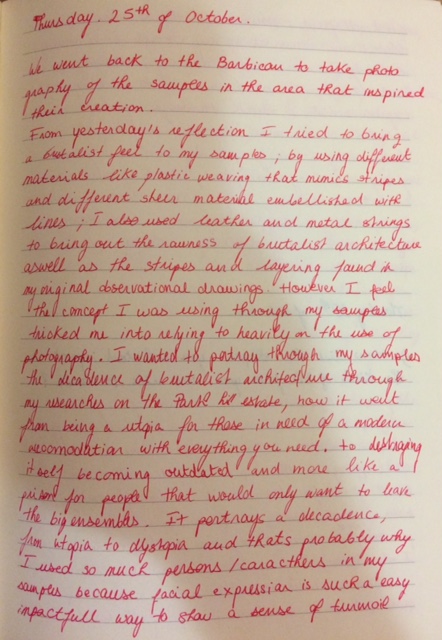 Thursday. 25th of October.
We went back to the Barbican to take photo
graphy of the samples in the area that inspired
their creation.
From yesterday's reflection I tried to bring
a brutalist feel to my samples ; by using different
materials like plastic weaving that mimics stripes
and different sheer material embellished with
lines ; I also used leather and metal strings
to bring out the rawness of brutalist architecture
aswell as the stripes and layering found in
my original observational drawings. However I feel
the concept I was using through my samples
tricked me into relying to heavily on the use of
photography. I wanted to portray through my samples
the decadence of brutalist architecture through
my researches on the Park hill estate, how it went
from being a utopia for those in need of a modern
accomodation with everything you need. to destroying
itself becoming outdated and more like a
prison for people that would only want to leave
the big ensembles. It portrays a decadence,
from utopia to dystopia and thats probably why
I used so much persons/caracthers in my
samples because facial expression is such a easy
impactfull way to show a sense of turmoil